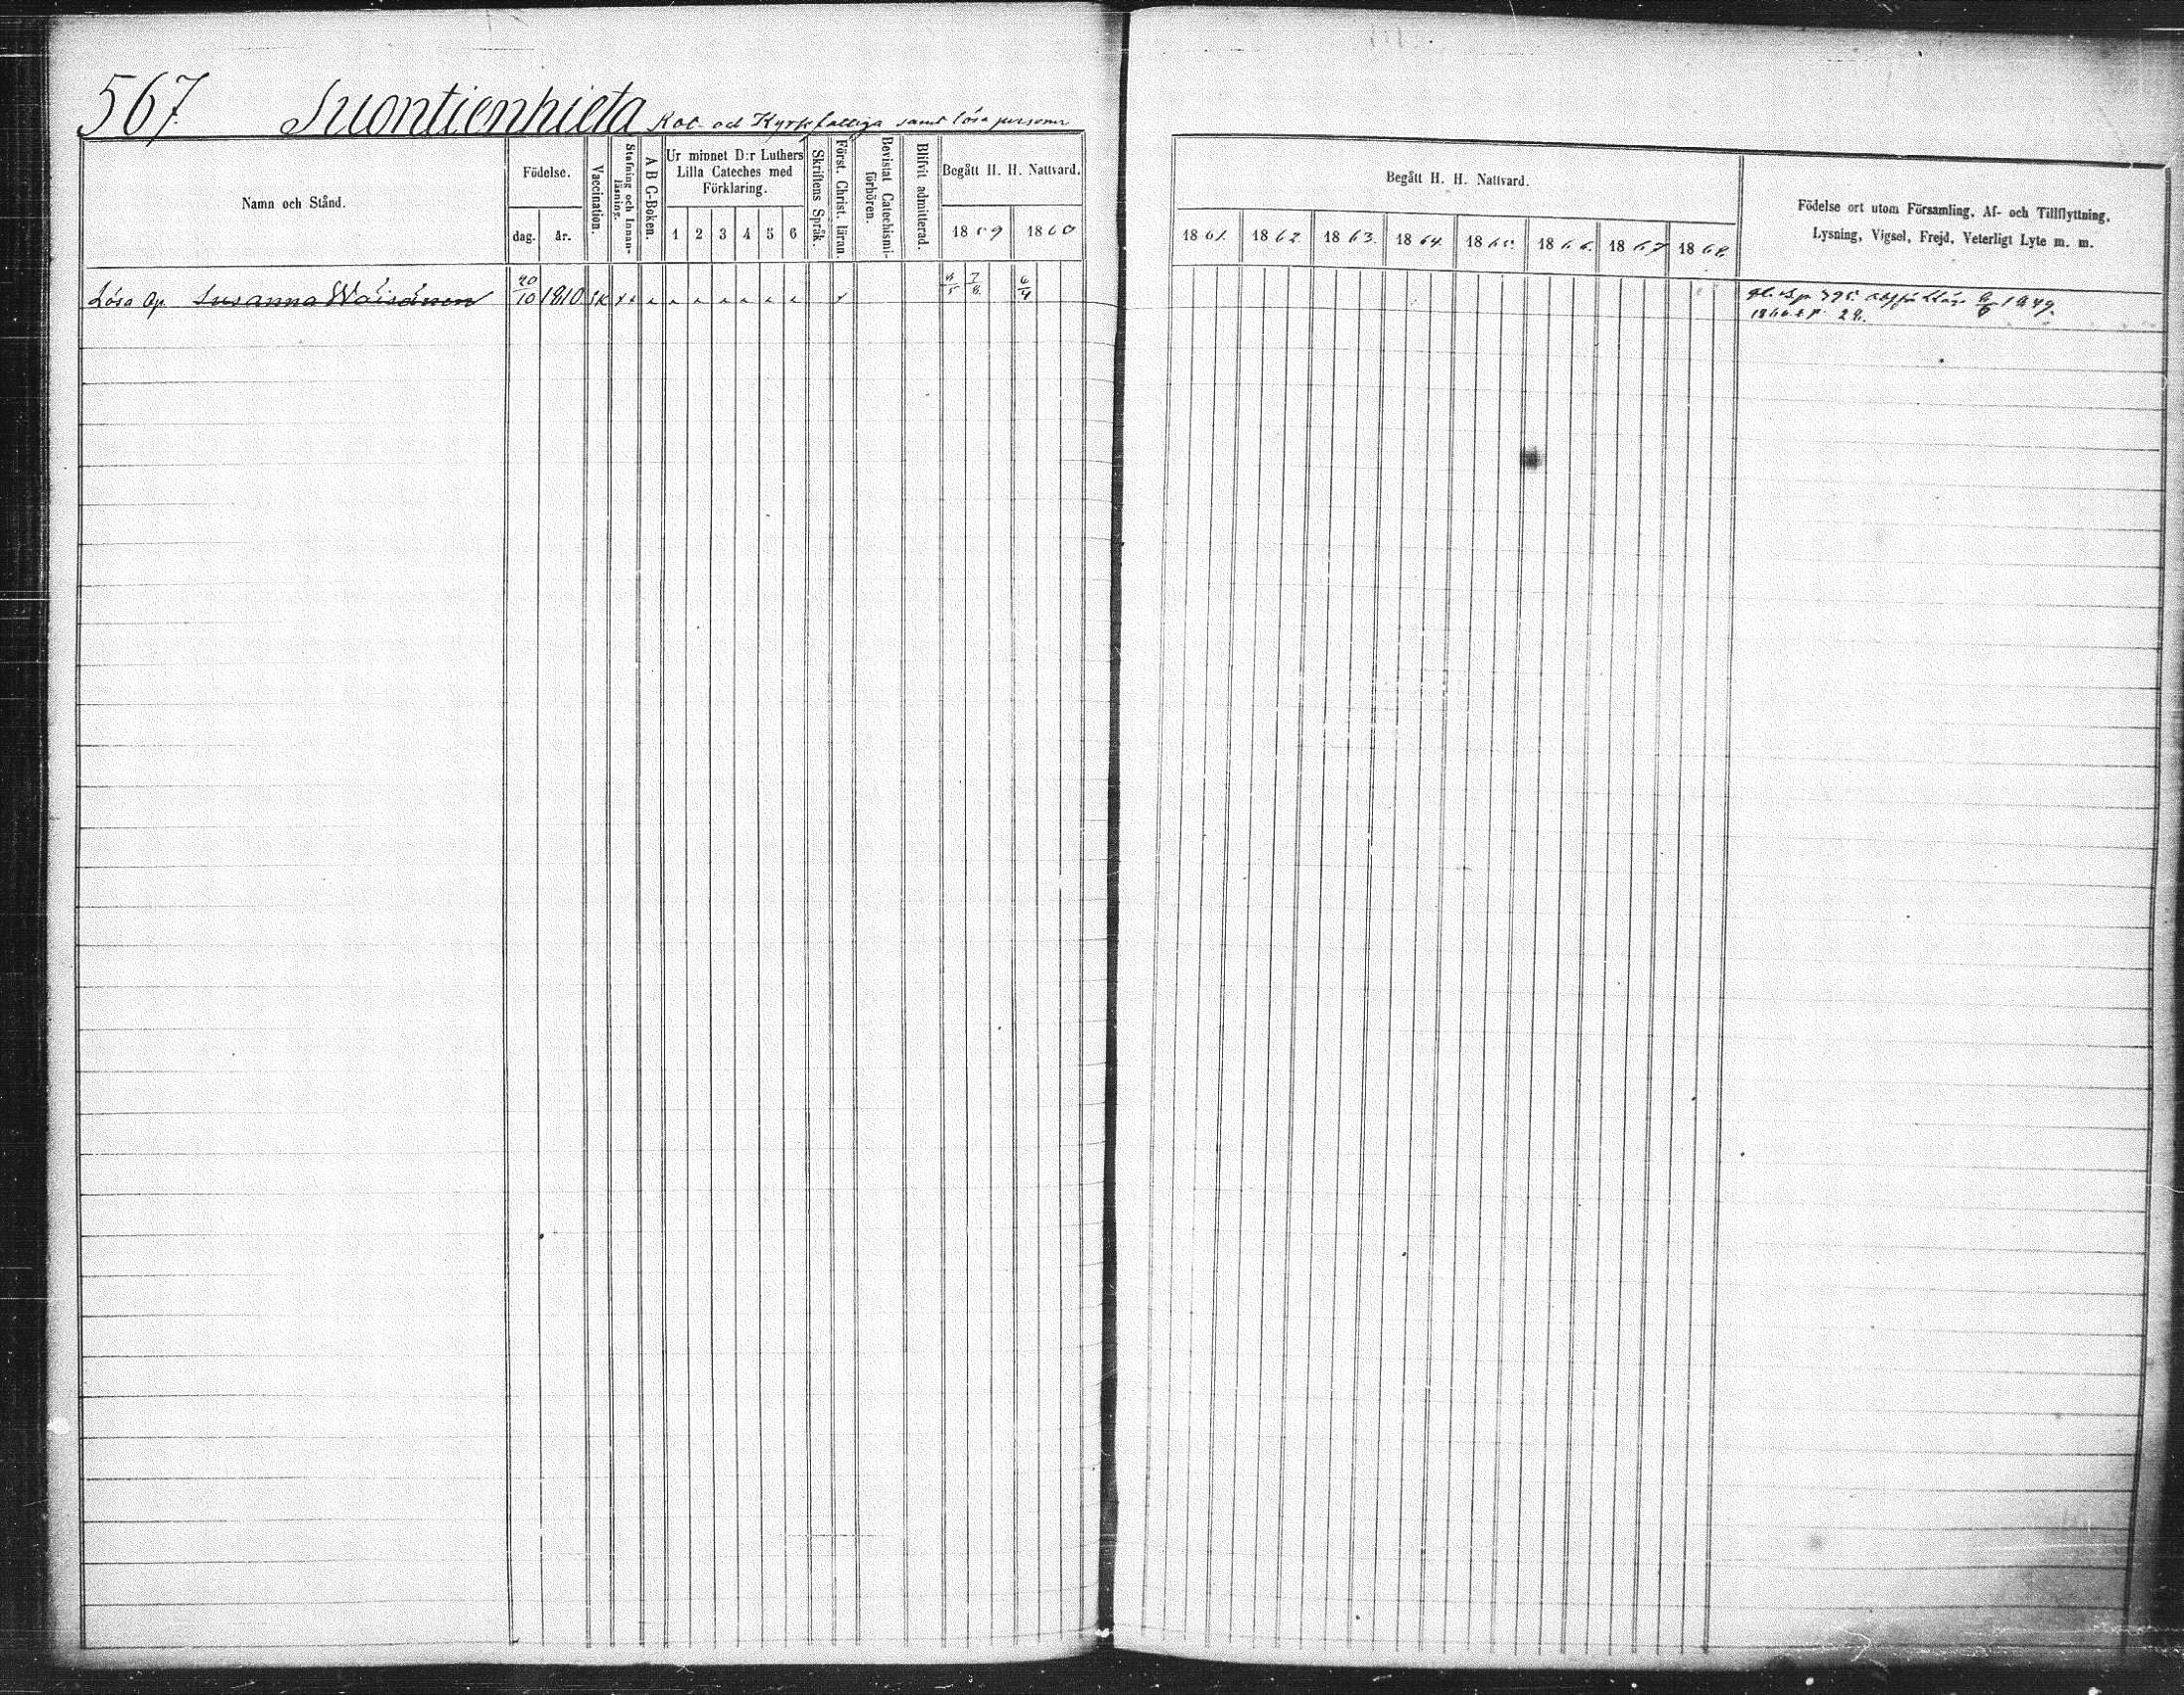 567 Suontienhieta Rot- och Kyrkfattiga samt lösa personer
Namn och Stånd.
Födelse.
dag.
år.
Vaccination.
Stafning och Innan-
läsning.
A B C-Boken.
Ur minnet D:r Luthers
Lilla Cateches med
Förklaring.
1 2 3 4 5 6
Skriftens Språk.
Först. Christ. läran.
Bevistat Catechismi-
förhören.
Blifvit admitterad.
Begått H. H. Nattvard.
1859 1860
Begått H. H. Nattvard.
1861. 1862. 1863. 1864. 1865. 1866. 1867 1868.
Födelse ort utom Församling, Af- och Tillflyttning,
Lysning, Vigsel, Frejd, Veterligt Lyte m. m.
Lösa Susanna Wäisänen 20/10 1810